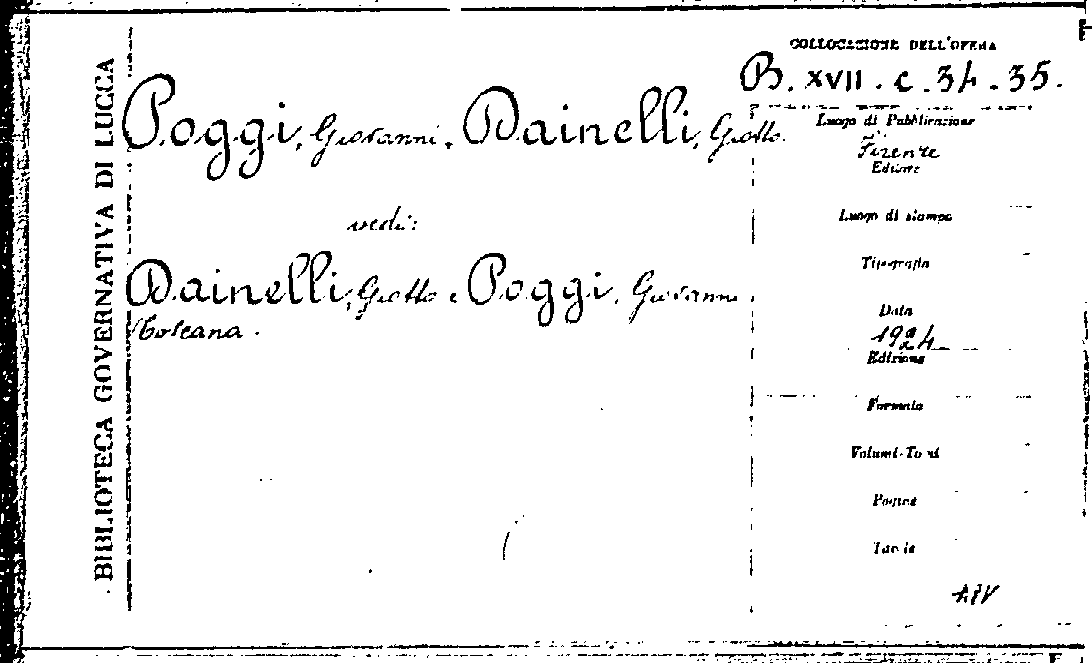 BIBLIOTECA GOVERNATIVA DI LUCCA
COLLOCAZIONE DELL'OPERA
B. XVII. c. 34. 35.
Poggi, Giovanni, Dainelli, Giotto.
vedi:
Dainelli, Giotto e Poggi, Giovanni
Toscana.
Luogo di Pubblicazione
Firenze
Editore
Luogo di stampa
Tipografia
Data
1924
Edizione
Formato
Volumi-Tomi
Pagine
Tavole